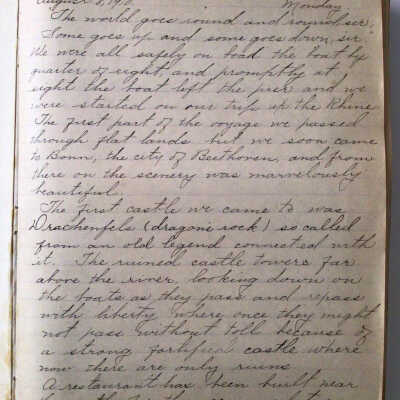 August Monday
The world goes round and round, sir,
Some goes up and some goes down, sir.
We were all safely on boad the boat by
quarter of eight, and promptly at
eight the boat left the pier and we
were started on our trip up the Rhine.
The first part of the voyage we passed
through flat lands but we soon came
to Bonn, the city of Beethoven, and from
there on the scenery was marvelously
beautiful.
The first castle we came to was
Drachenfels (dragons rock) so called
from an old legend connected with
it. The ruined castle towers far
above the river, looking down on
the boats as they pass and repass
with liberty where once they might
not pass without toll because of
a strong fortified castle where
now there are only ruins
A restaurant has been built near